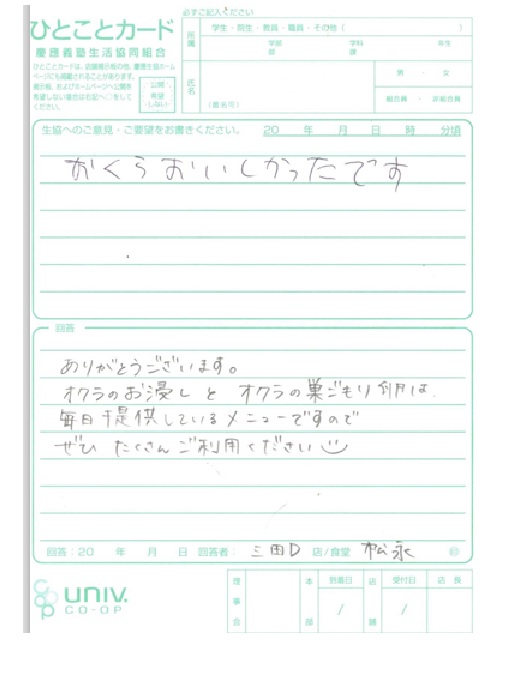 必ずご記入ください
ひとことカード
慶應義塾生活協同組合
ひとことカードは、店頭掲示板の他、慶應生協ホームページにも掲載されることがあります。
掲示板、およびホームページへ公開を希望しない場合は右記へ○をしてください。
公開希望しない
所属
学生・院生・教員・職員・その他（　　）
学部
学科
年生
氏名
（匿名可）
男・女
組合員・非組合員
生協へのご意見・ご要望をお書きください。
20　年　月　日　時　分頃
おくらおいしかったです
回答
ありがとうございます。
オクラのお浸しと オクラの巣ごもり
は、
毎日提供しているメニューですので
ぜひ たくさんご利用ください
回答：20　年　月　日　回答者：三田D　店/食堂　松永　㊞
univ.
CO-OP
理事会
本部
到着日
/
店舗
受付日
/
店長